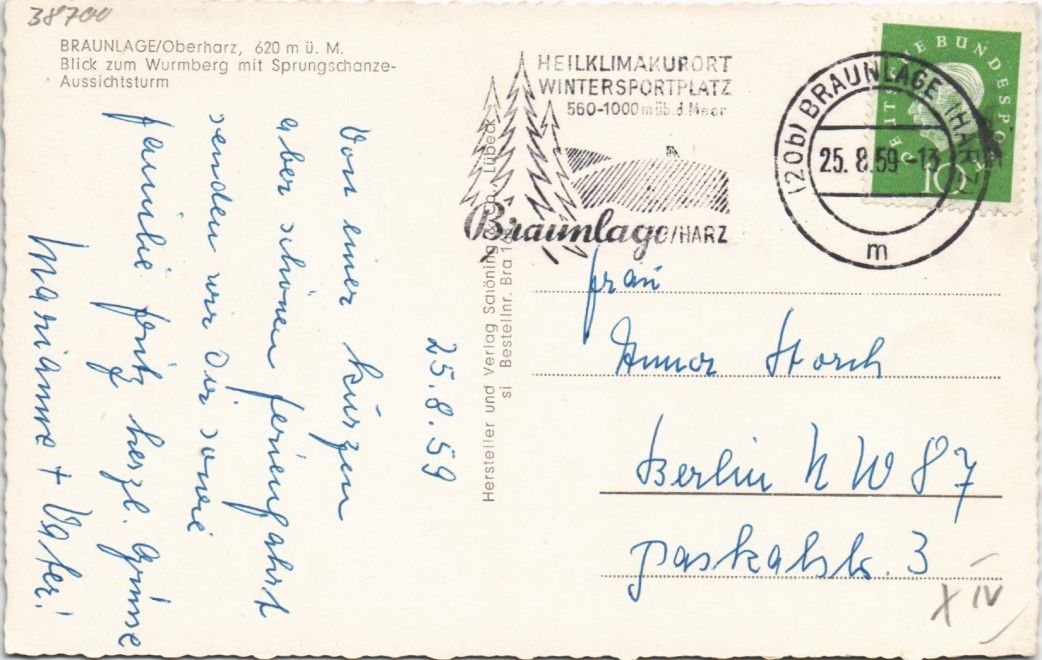 38700
BRAUNLAGE/Oberharz, 620 m ü. M.
Blick zum Wurmberg mit Sprungschanze-
Aussichtsturm
25.8.59
Von einer kurzen
aber schönen Ferienfahrt
senden wir Dir sowie
Familie Fritz herzl. Grüsse
Marianne + Vater!
Hersteller und Verlag Schöning & Co., Lübeck
si Bestellnr. Bra
HEILKLIMAKURORT
WINTERSPORTPLATZ
560-1000 m üb. d. Meer
Braunlage/HARZ
(20b) BRAUNLAGE (HARZ)
25. 8. 59 -13
m
DEUTSCHE BUNDESPOST
10
Frau
Anna Storch
Berlin NW 87
Paskalstr. 3
X IV